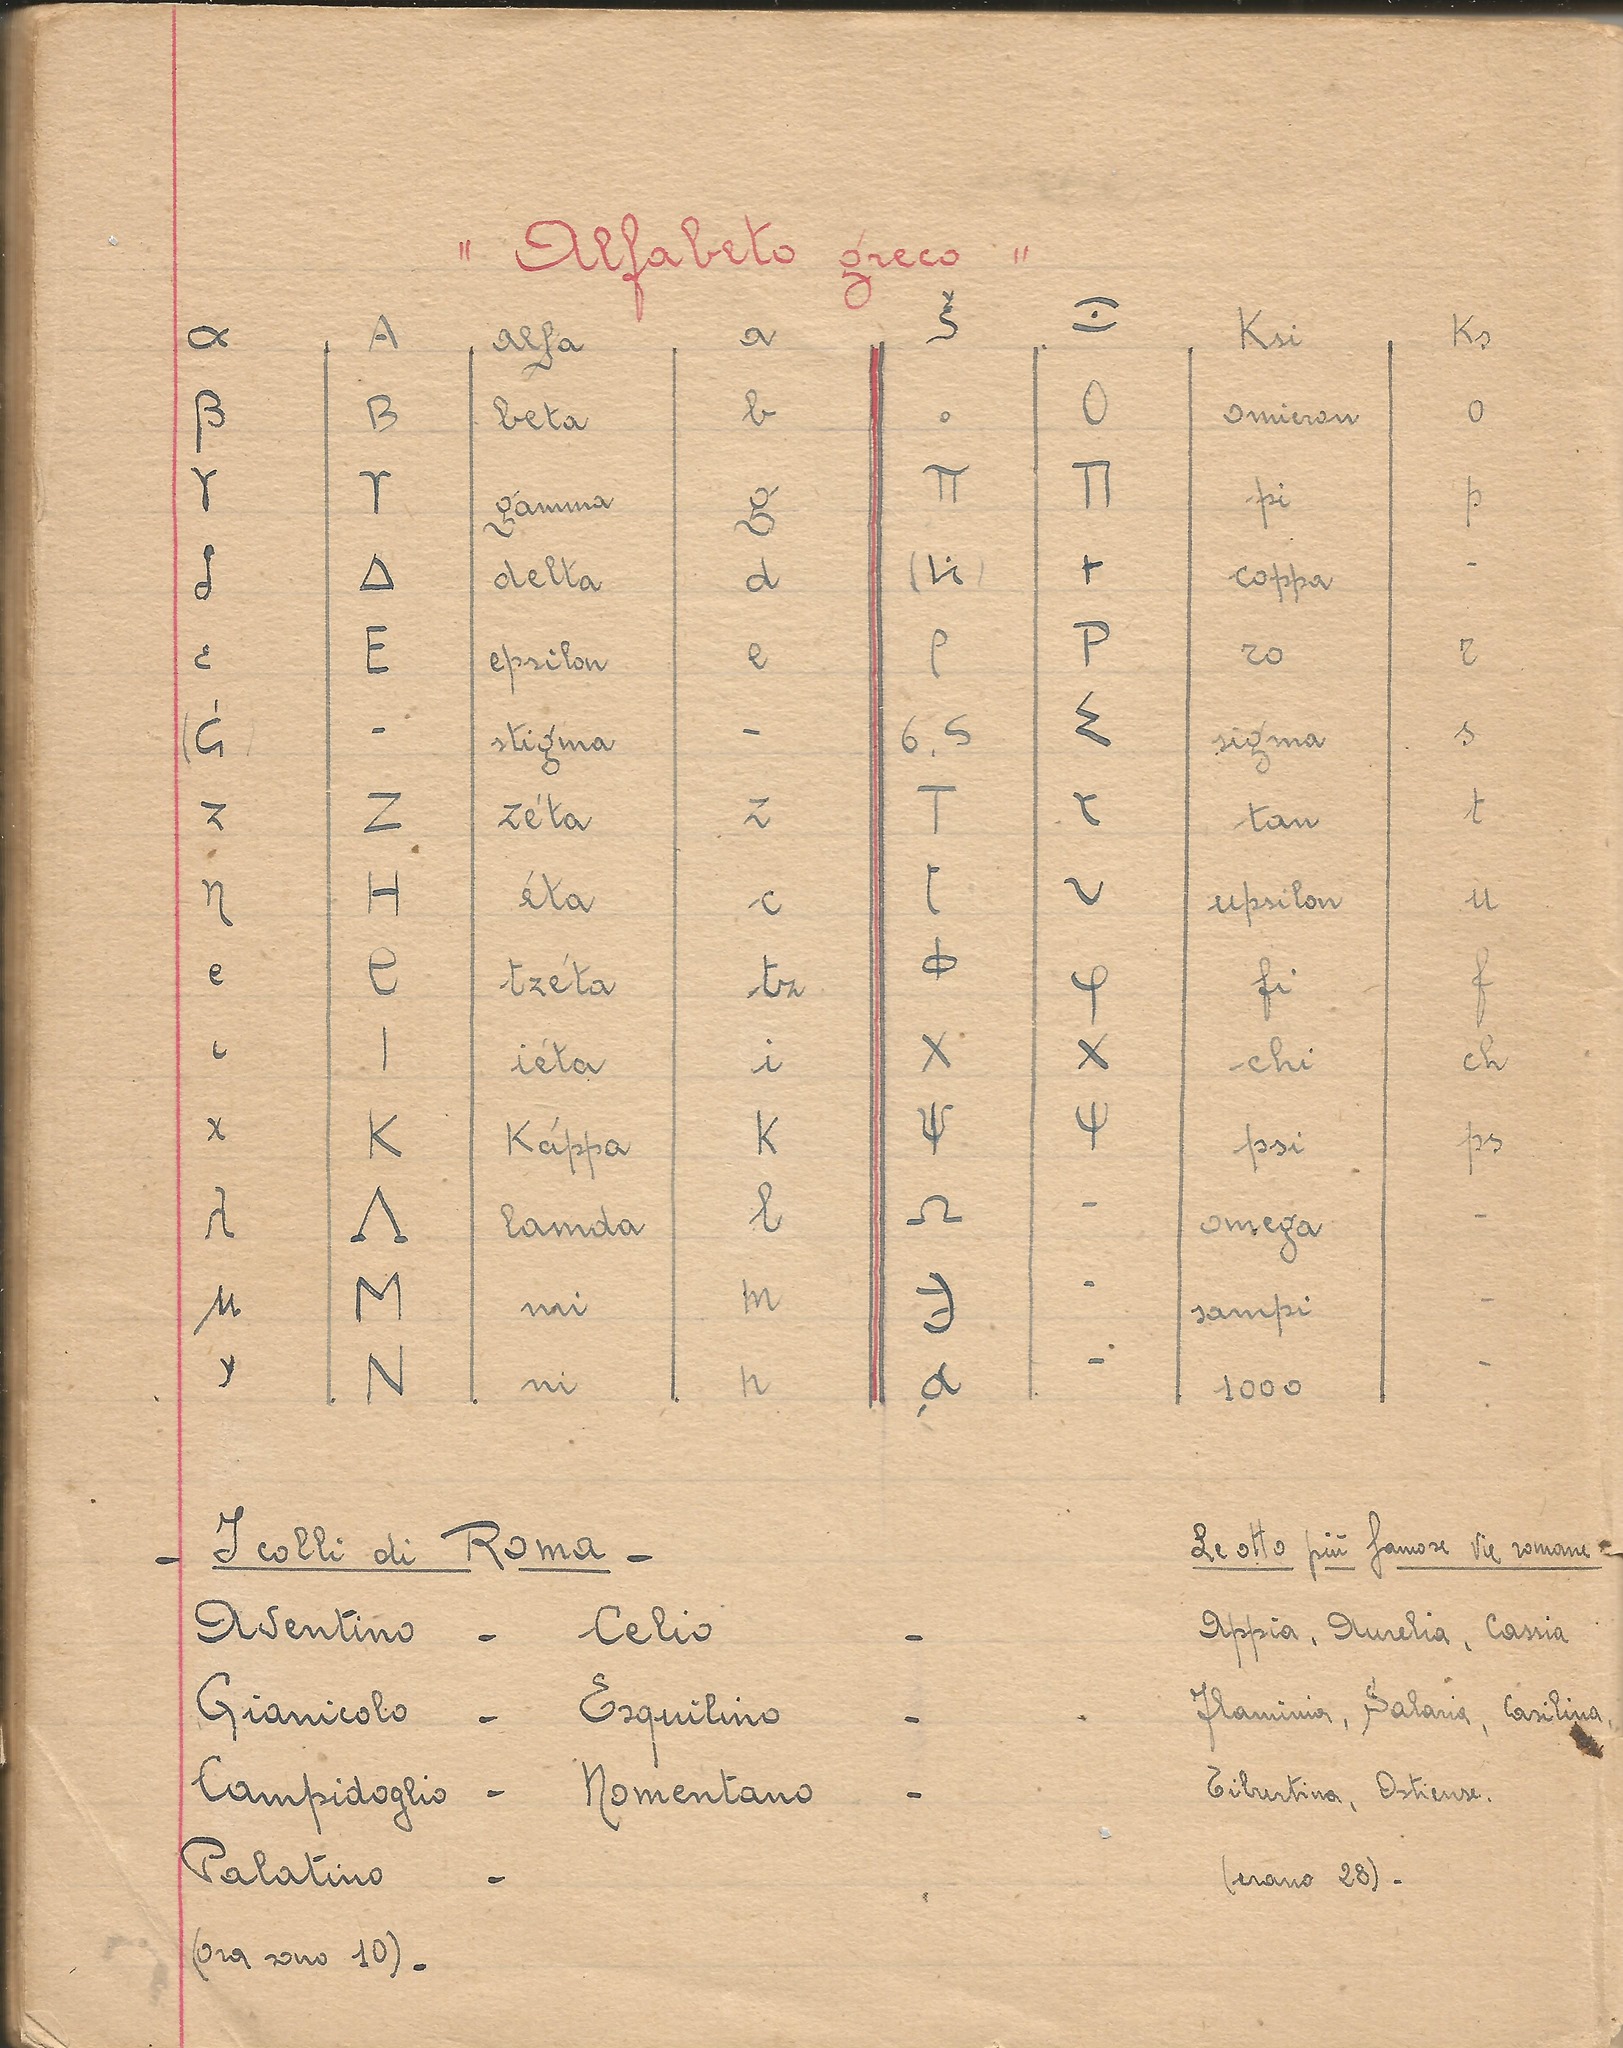 " Alfabeto greco "
α A alfa a ξ Ξ Ksi Ks
β B beta b o O omicron o
γ ϒ gamma g π Π pi p
δ Δ delta d ( ) coppa -
ε E epsilon e ρ P ro r
(ς) - stigma - σ, ς Σ sigma s
z Z zéta z T τ tau t
η H éta e υ upsilon u
e tzéta tz Φ φ fi f
ι I iéta i X X chi ch
x K Káppa K Ψ Ψ psi ps
λ Λ lamda l Ω - omega -
μ M mi m ϡ - sampi -
ν N ni n ͵α - 1000 -
- I colli di Roma -
Le otto più famose vie romane -
Aventino - Celio -
Appia, Aurelia, Cassia
Gianicolo - Esquilino -
Flaminia, Salaria, Casilina,
Campidoglio - Nomentano -
Tiburtina, Ostiense.
Palatino -
(erano 28) -
(ora sono 10) -